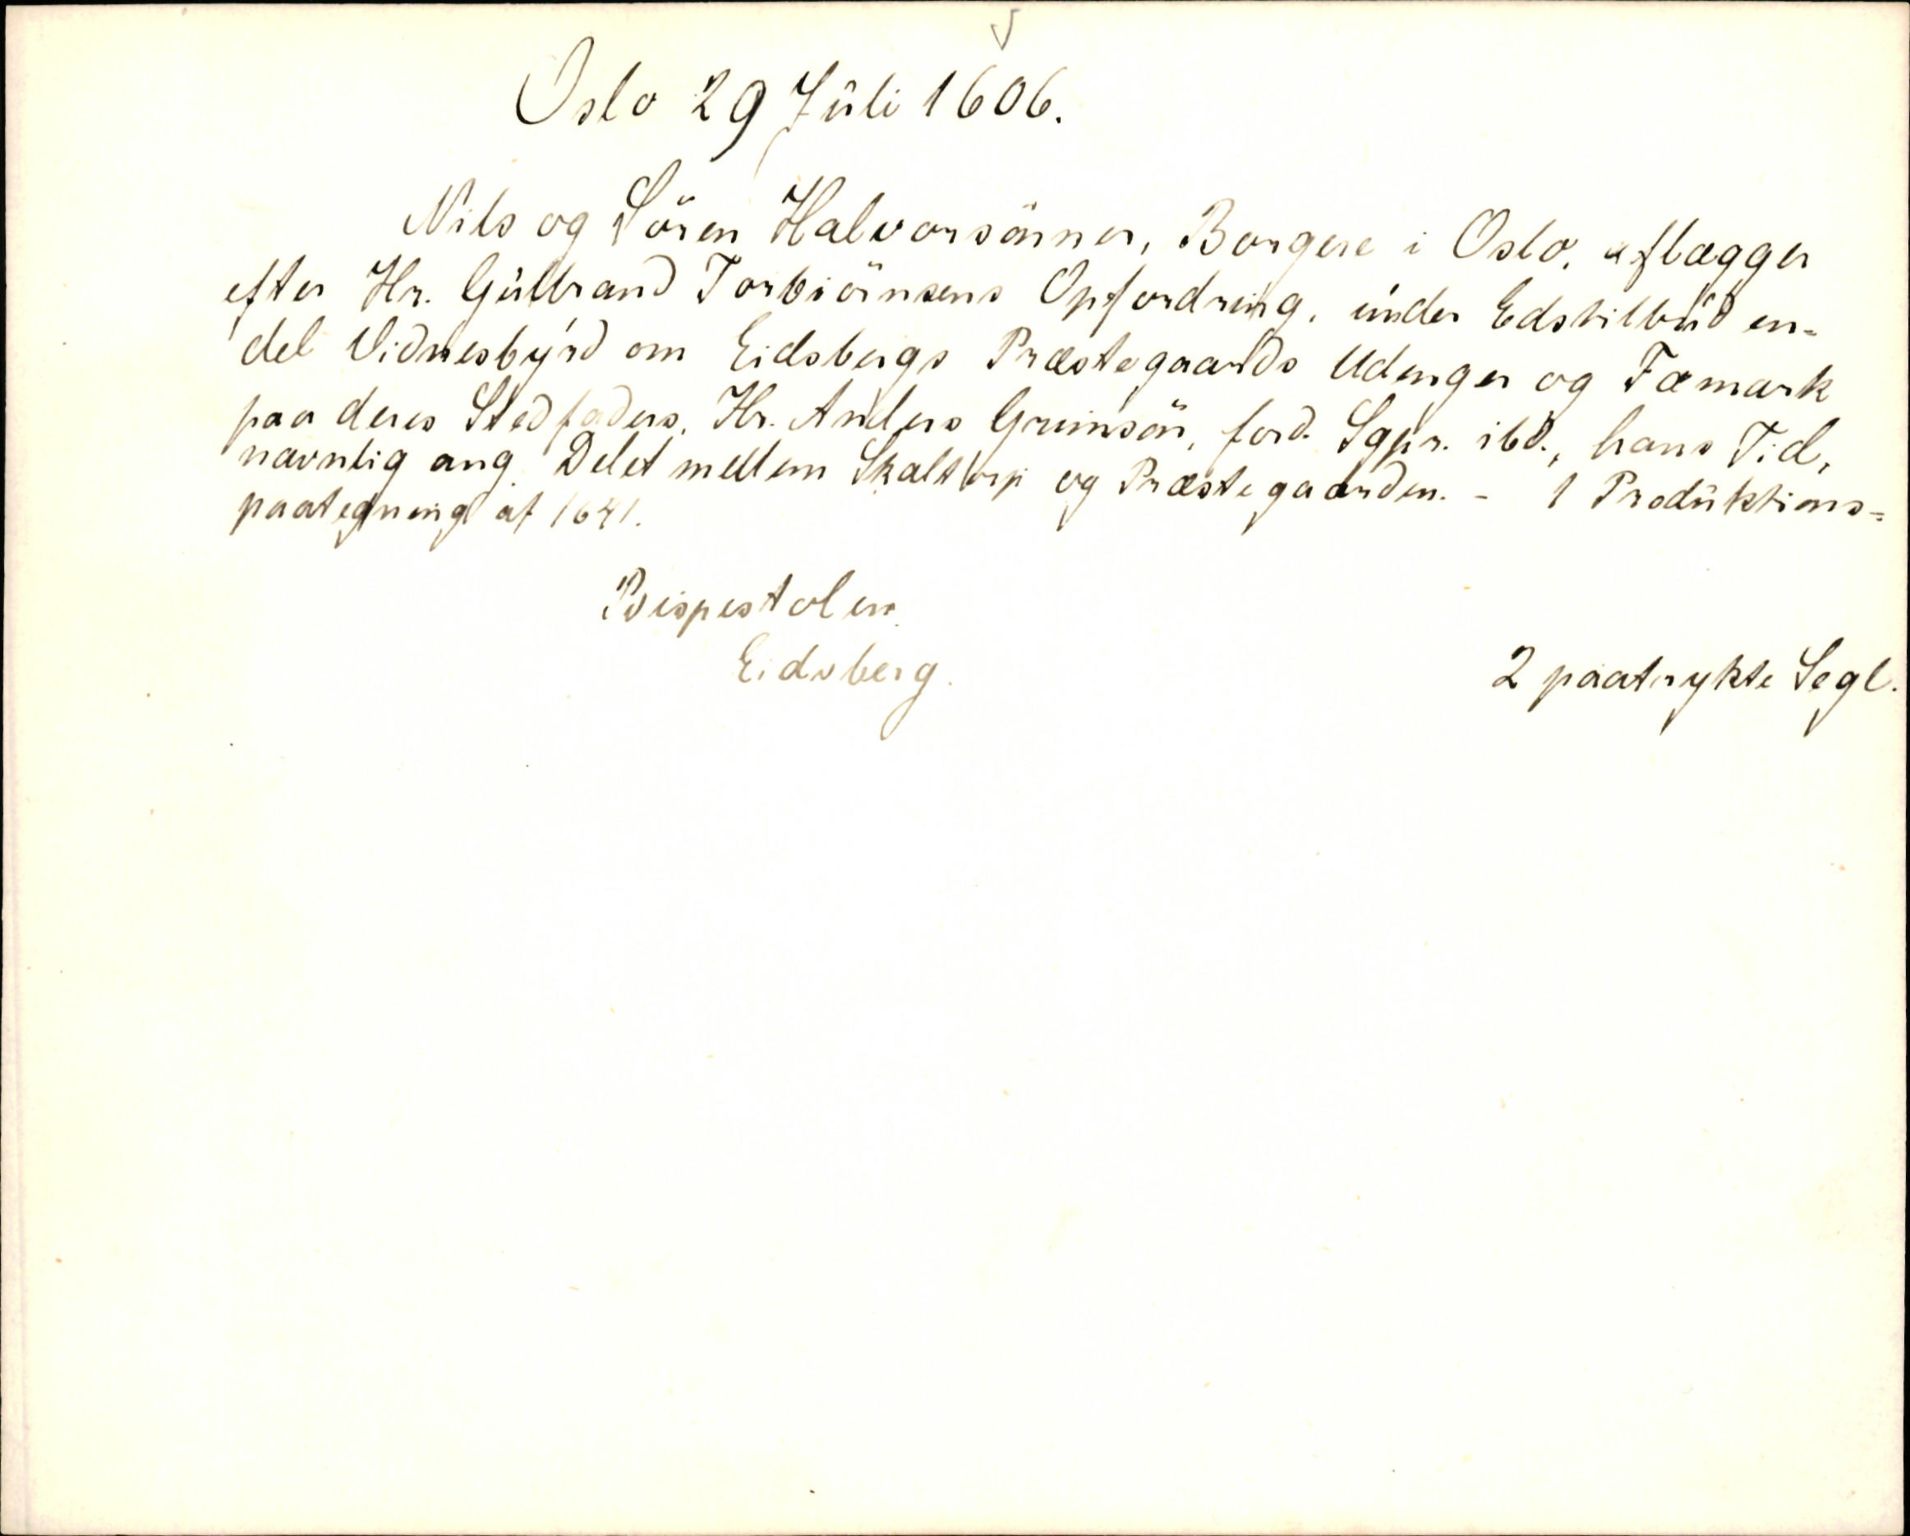 Oslo 29 Juli 1606.
Nils og Sören Halvorsönner, Borgere i Oslo, aflægger
efter Hr. Gulbrand Torbiörnsens Opfordring, under Edstilbud en-
del Vidnesbyrd om Eidsbergs Præstegaards Udenger og Fæmark
paa deres Stedfaders, Hr. Anders Greinsön, ford. Sgpr. ibd., hans Tid,
navnlig ang. Delet mellem Skaltorp og Præstegaarden. - 1 Produktions-
paategning af 1641.
Bispestolen.
Eidsberg.
2 paatrykte Segl.